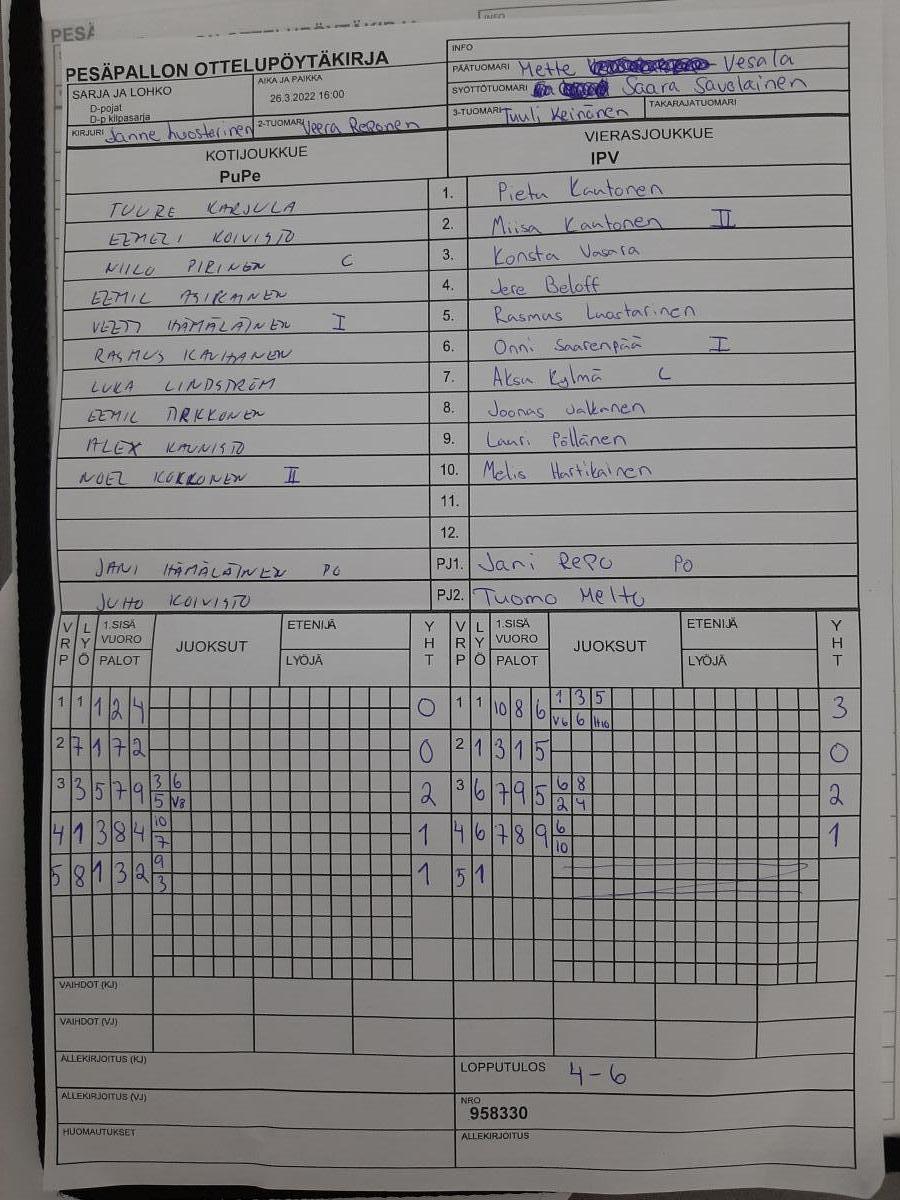 PESÄPALLON OTTELUPÖYTÄKIRJA
INFO
PÄÄTUOMARI Mette Vesala
SARJA JA LOHKO
D-pojat
D-p kilpasarja
AIKA JA PAIKKA
26.3.2022 16:00
SYÖTTÖTUOMARI Saara Savolainen
KIRJURI Janne Luostarinen 2-TUOMARI Veera Reponen
3-TUOMARI Tuuli Keinänen TAKARAJATUOMARI
KOTIJOUKKUE VIERASJOUKKUE
PuPe IPV
TUURE KARJULA 1. Pietu Kantonen
EEMELI KOIVISTO 2. Miisa Kantonen II
NIILO PIRINEN C 3. Konsta Vasara
EEMIL ASIKAINEN 4. Jere Beloff
VEETI HÄMÄLÄINEN I 5. Rasmus Luostarinen
RASMUS KAUHANEN 6. Onni Saarenpää I
LUKA LINDSTRÖM 7. Aksu Kylmä C
EEMIL PIKKONEN 8. Joonas Jalkanen
ALEX KAUNISTO 9. Lauri Pöllänen
NOEL KOKKONEN II 10. Melis Hartikainen
11.
12.
JANI HÄMÄLÄINEN PO PJ1. Jani Repo PO
JUHO KOIVISTO PJ2. Tuomo Melto
VRP LYÖ 1.SISÄ VUORO PALOT JUOKSUT ETENIJÄ LYÖJÄ YHT VRP LYÖ 1.SISÄ VUORO PALOT JUOKSUT ETENIJÄ LYÖJÄ YHT
1 1 1 2 4 0 1 1 10 8 6 1 3 5 3
V6 6 H10
2 7 1 7 2 0 2 1 3 1 5 0
3 3 5 7 9 3 6 2 3 6 7 9 5 6 8 2
5 V8 2 4
4 1 3 8 4 10 1 4 6 7 8 9 6 1
7 10
5 8 1 3 2 9 1 5 1
3
VAIHDOT (KJ)
VAIHDOT (VJ)
ALLEKIRJOITUS (KJ) LOPPUTULOS 4-6
ALLEKIRJOITUS (VJ) NRO
958330
HUOMAUTUKSET ALLEKIRJOITUS